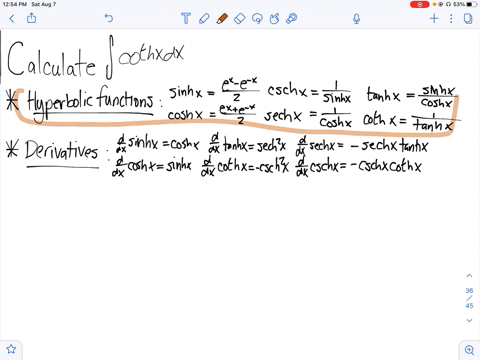 12:54 PM Sat Aug 7
53%
Calculate ∫cothxdx
* Hyperbolic functions: sinhx = (eˣ-e⁻ˣ)/2 cschx = 1/sinhx tanhx = sinhx/coshx
coshx = (eˣ+e⁻ˣ)/2 sechx = 1/coshx cothx = 1/tanhx
* Derivatives: d/dx sinhx = coshx d/dx tanhx = sech²x d/dx sechx = - sechx tanhx
d/dx coshx = sinhx d/dx cothx = -csch²x d/dx cschx = - cschx cothx
36
/
45